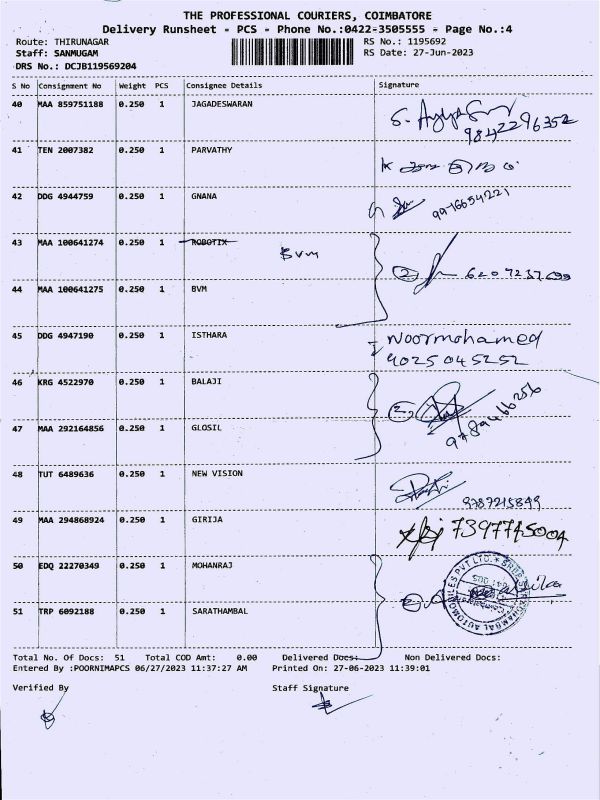 THE PROFESSIONAL COURIERS, COIMBATORE
Delivery Runsheet - PCS - Phone No.:0422-3505555 - Page No.:4
Route: THIRUNAGAR RS No.: 1195692
Staff: SANMUGAM RS Date: 27-Jun-2023
DRS No.: DCJB119569204
S No Consignment No Weight PCS Consignee Details Signature
40 MAA 859751188 0.250 1 JAGADESWARAN
9842296352
41 TEN 2007382 0.250 1 PARVATHY
42 DDG 4944759 0.250 1 GNANA 9976654221
43 MAA 100641274 0.250 1 ROBOTIX BVM
44 MAA 100641275 0.250 1 BVM
45 DDG 4947190 0.250 1 ISTHARA Noormohamed
9025045252
46 KRG 4522970 0.250 1 BALAJI
47 MAA 292164856 0.250 1 GLOSIL
48 TUT 6489636 0.250 1 NEW VISION
9787215849
49 MAA 294868924 0.250 1 GIRIJA 7397745004
50 EDQ 22270349 0.250 1 MOHANRAJ
51 TRP 6092188 0.250 1 SARATHAMBAL
Total No. Of Docs: 51 Total COD Amt: 0.00 Delivered Docs: Non Delivered Docs:
Entered By :POORNIMAPCS 06/27/2023 11:37:27 AM Printed On: 27-06-2023 11:39:01
Verified By Staff Signature